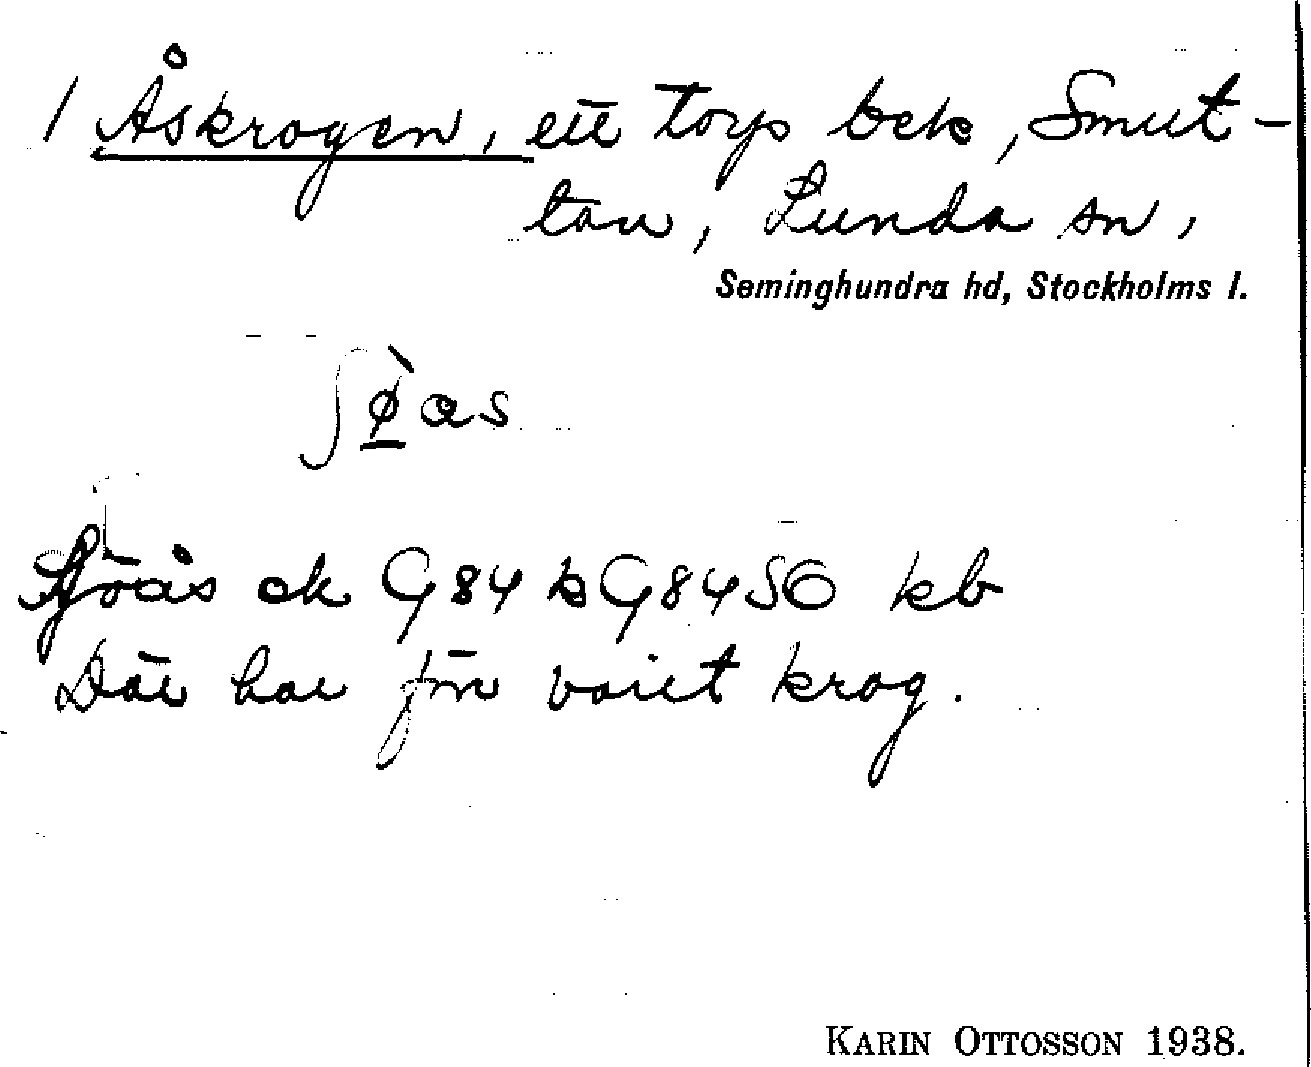 / Åskrogen, ett torp bek, Smut-
tan, Lunda sn,
Seminghundra hd, Stockholms l.
ʃø̀as
Sjöås ek G84 b G84 SO kb
Där har förr varit krog.
KARIN OTTOSSON 1938.